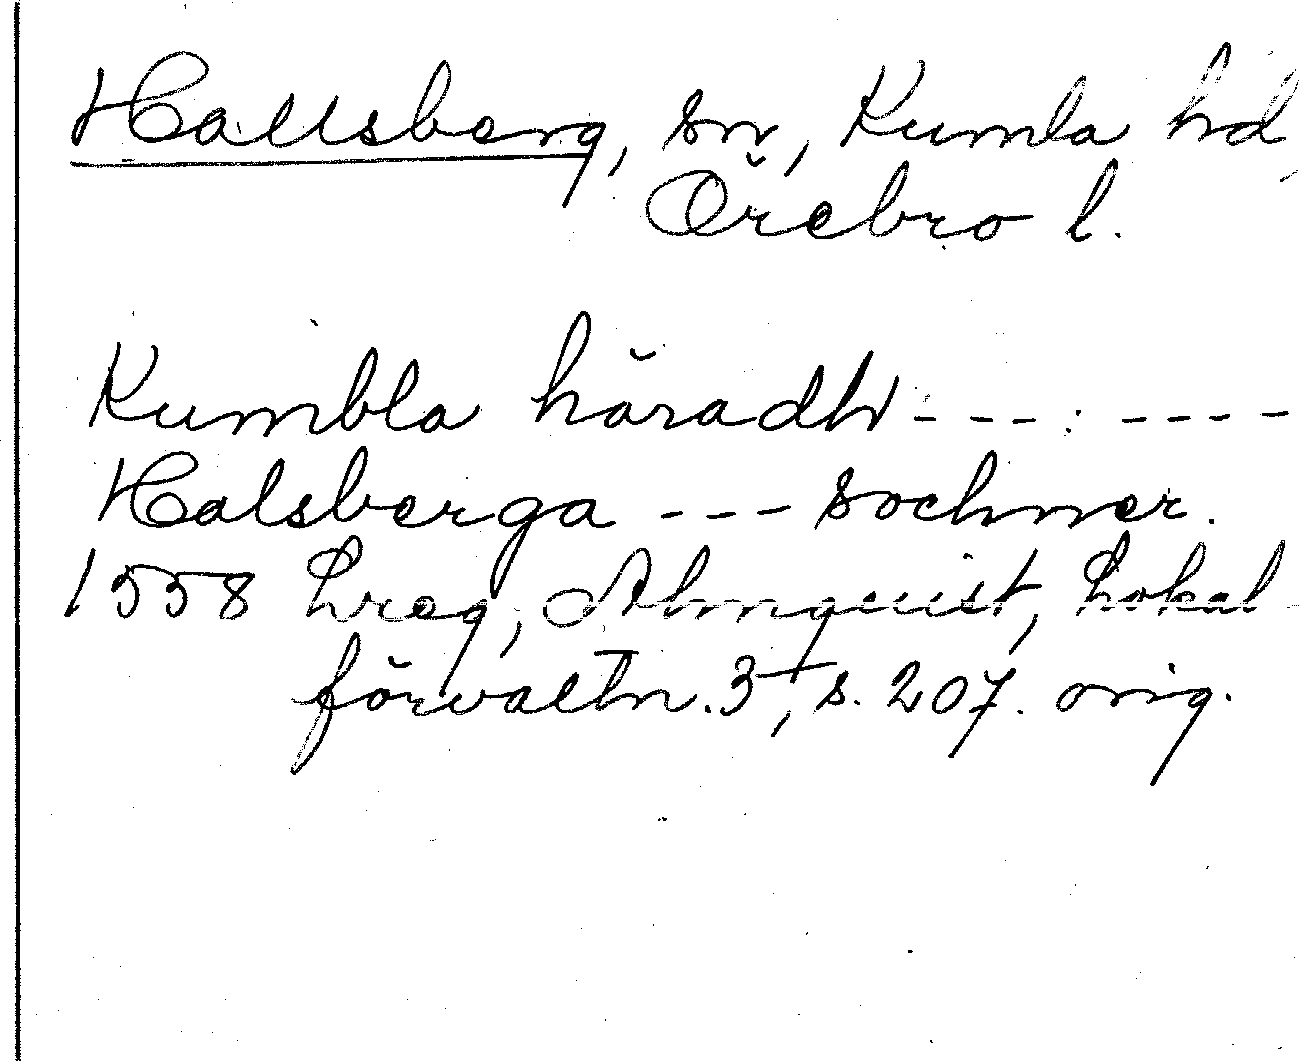 Hallsberg, sn, Kumla hd,
Örebro l.
Kumbla häradh - - - : - - - -
Halsberga - - - sochner.
1558 Lreg, Almquist, Lokal
förvaltn. 3, s. 207. orig.